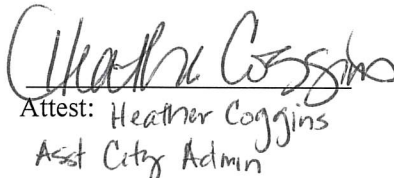 Heather Coggins
Attest: Heather Coggins
Asst City Admin